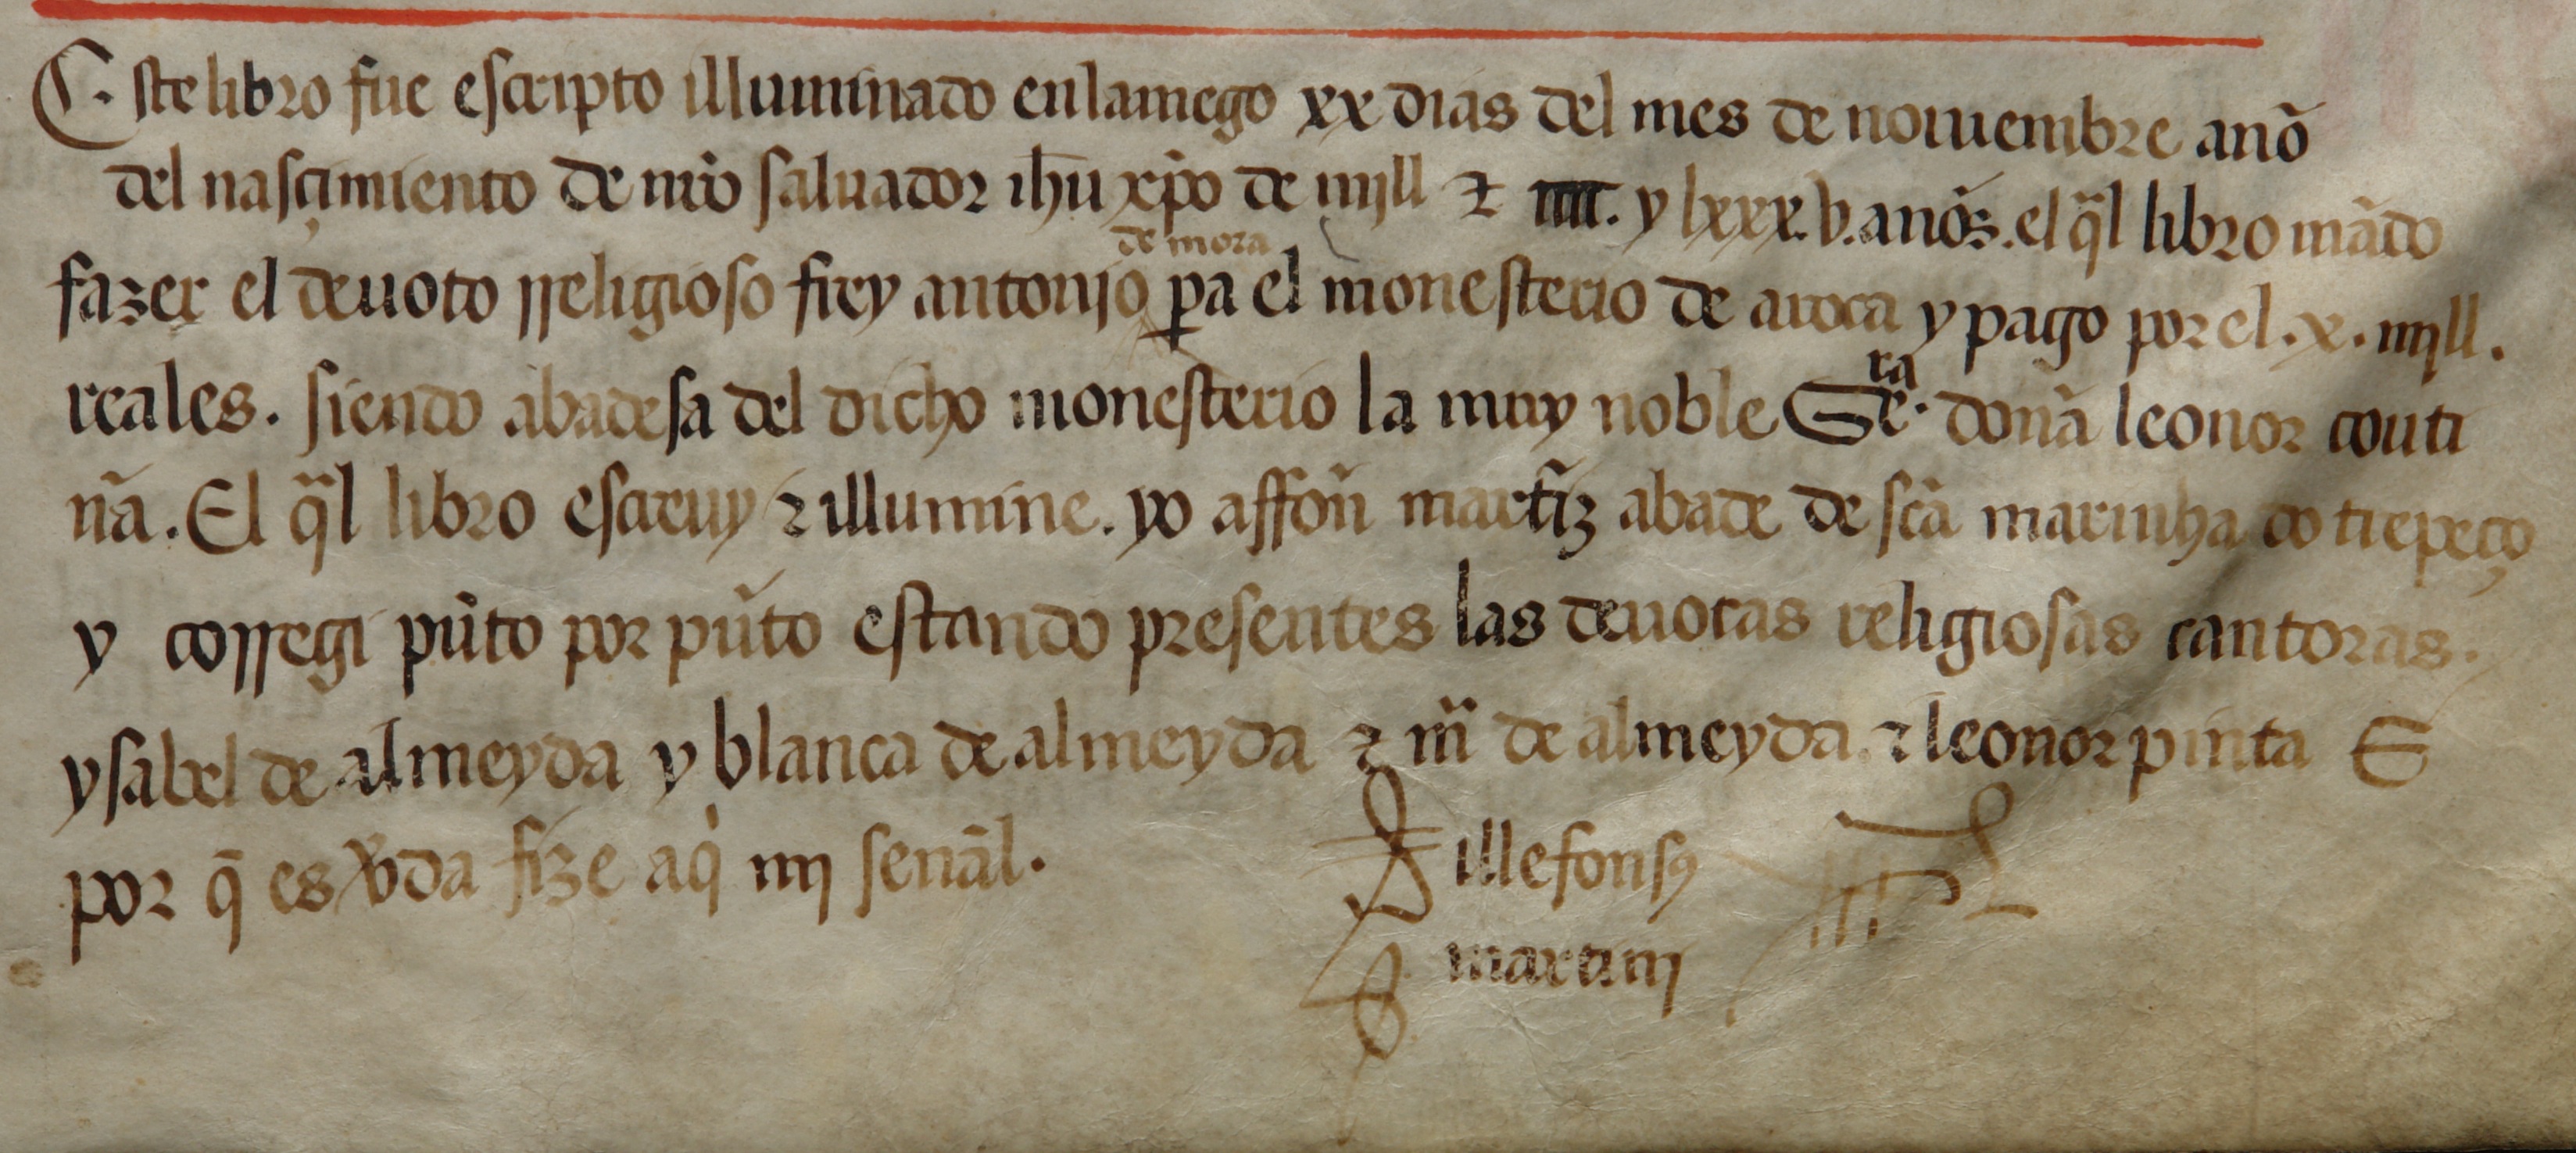 Este libro fue escripto illuminado en lamego xx dias del mes de nouiembre anõ
del nasçimiento de nr̃o saluador ihũ xp̃o de mjll ⁊ iiii. y lxxx.v. anõs. el q̃l libro mãdo
de mora
fazer el deuoto rreligioso frey antonjo ꝑa el monesterio de aroca y pago por el .x. mjll.
reales. siendo abadesa del dicho monesterio la muy noble Seᷓra. donã leonor couti
nã. El q̃l libro escreuy ⁊ illumine. yo affoñ martĩz abade de sc̃a marinha do trepeço
y corregi pũto por pũto estando presentes las deuotas religiosas cantoras.
ysabel de almeyda y blanca de almeyda ⁊ m̃ de almeyda. ⁊ leonor pinta E
por q̃ es v̾da fize aq̇ mj senãl.
illefonsꝰ
martinj